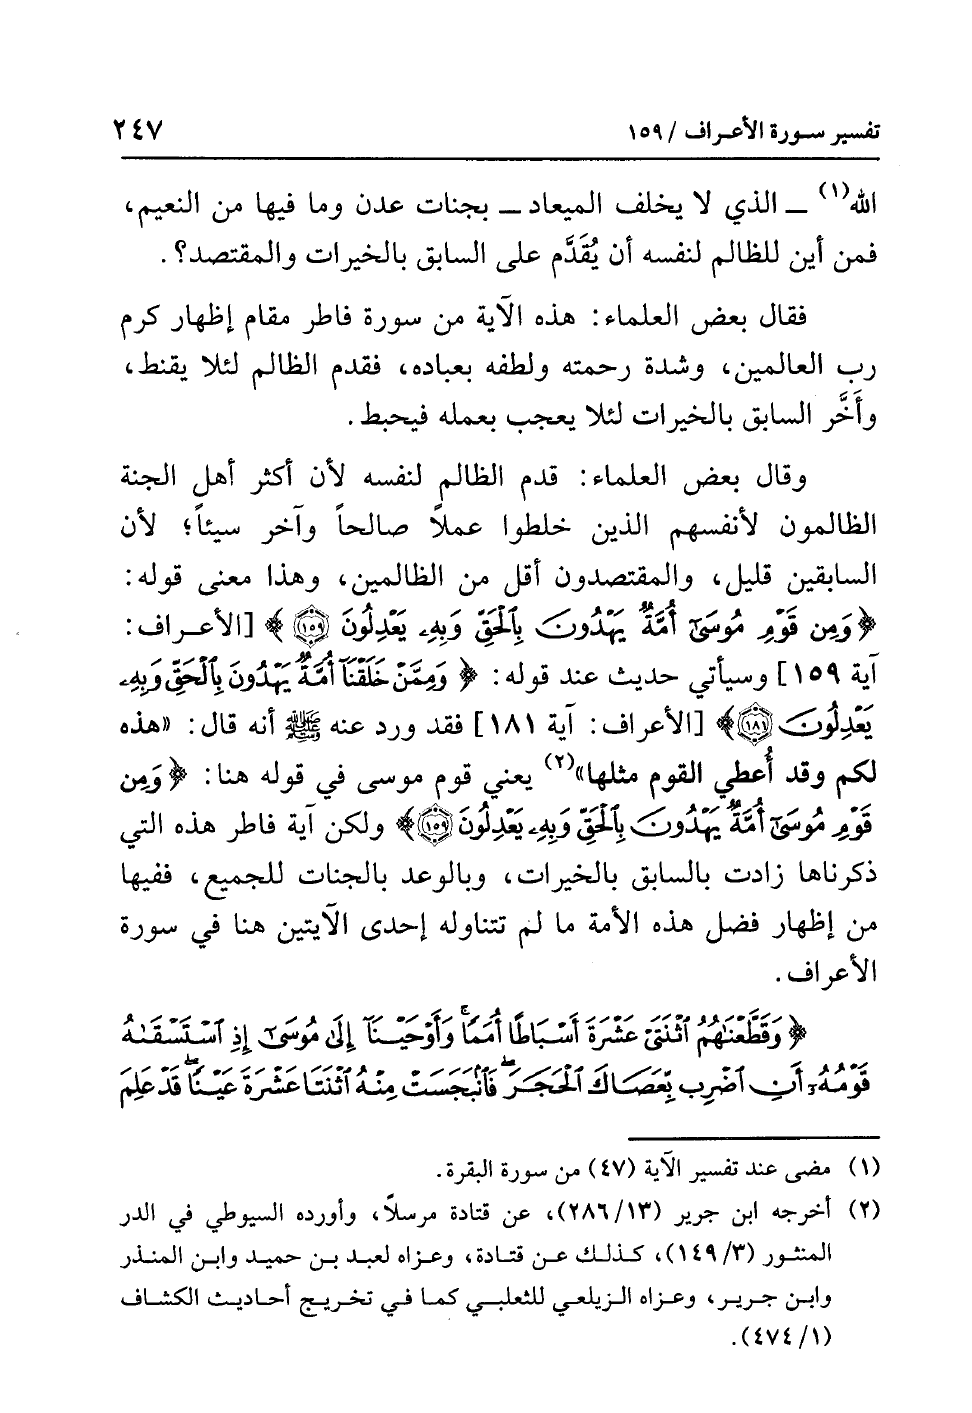 تفسير سورة الأعراف / ١٥٩ ٢٤٧
الله(١) ــ الذي لا يخلف الميعاد ــ بجنات عدن وما فيها من النعيم،
فمن أين للظالم لنفسه أن يُقَدَّم على السابق بالخيرات والمقتصد؟.
فقال بعض العلماء: هذه الآية من سورة فاطر مقام إظهار كرم
رب العالمين، وشدة رحمته ولطفه بعباده، فقدم الظالم لئلا يقنط،
وأَخَّر السابق بالخيرات لئلا يعجب بعمله فيحبط.
وقال بعض العلماء: قدم الظالم لنفسه لأن أكثر أهل الجنة
الظالمون لأنفسهم الذين خلطوا عملاً صالحاً وآخر سيئاً؛ لأن
السابقين قليل، والمقتصدون أقل من الظالمين، وهذا معنى قوله:
﴿ وَمِن قَوْمِ مُوسَىٰٓ أُمَّةٌ يَهْدُونَ بِٱلْحَقِّ وَبِهِۦ يَعْدِلُونَ ١٥٩ ﴾ [الأعراف:
آية ١٥٩] وسيأتي حديث عند قوله: ﴿ وَمِمَّنْ خَلَقْنَآ أُمَّةٌ يَهْدُونَ بِٱلْحَقِّ وَبِهِۦ
يَعْدِلُونَ ١٨١﴾ [الأعراف: آية ١٨١] فقد ورد عنه ﷺ أنه قال: «هذه
لكم وقد أُعطي القوم مثلها»(٢) يعني قوم موسى في قوله هنا: ﴿ وَمِن
قَوْمِ مُوسَىٰٓ أُمَّةٌ يَهْدُونَ بِٱلْحَقِّ وَبِهِۦ يَعْدِلُونَ ١٥٩﴾ ولكن آية فاطر هذه التي
ذكرناها زادت بالسابق بالخيرات، وبالوعد بالجنات للجميع، ففيها
من إظهار فضل هذه الأمة ما لم تتناوله إحدى الآيتين هنا في سورة
الأعراف.
﴿ وَقَطَّعْنَٰهُمُ ٱثْنَتَىْ عَشْرَةَ أَسْبَاطًا أُمَمًا ۚ وَأَوْحَيْنَآ إِلَىٰ مُوسَىٰٓ إِذِ ٱسْتَسْقَىٰهُ
قَوْمُهُۥٓ أَنِ ٱضْرِب بِّعَصَاكَ ٱلْحَجَرَ ۖ فَٱنۢبَجَسَتْ مِنْهُ ٱثْنَتَا عَشْرَةَ عَيْنًا ۖ قَدْ عَلِمَ
(١) مضى عند تفسير الآية (٤٧) من سورة البقرة.
(٢) أخرجه ابن جرير (٢٨٦/١٣)، عن قتادة مرسلاً، وأورده السيوطي في الدر
المنثور (١٤٩/٣)، كذلك عن قتادة، وعزاه لعبد بن حميد وابن المنذر
وابن جرير، وعزاه الزيلعي للثعلبي كما في تخريج أحاديث الكشاف
(٤٧٤/١).